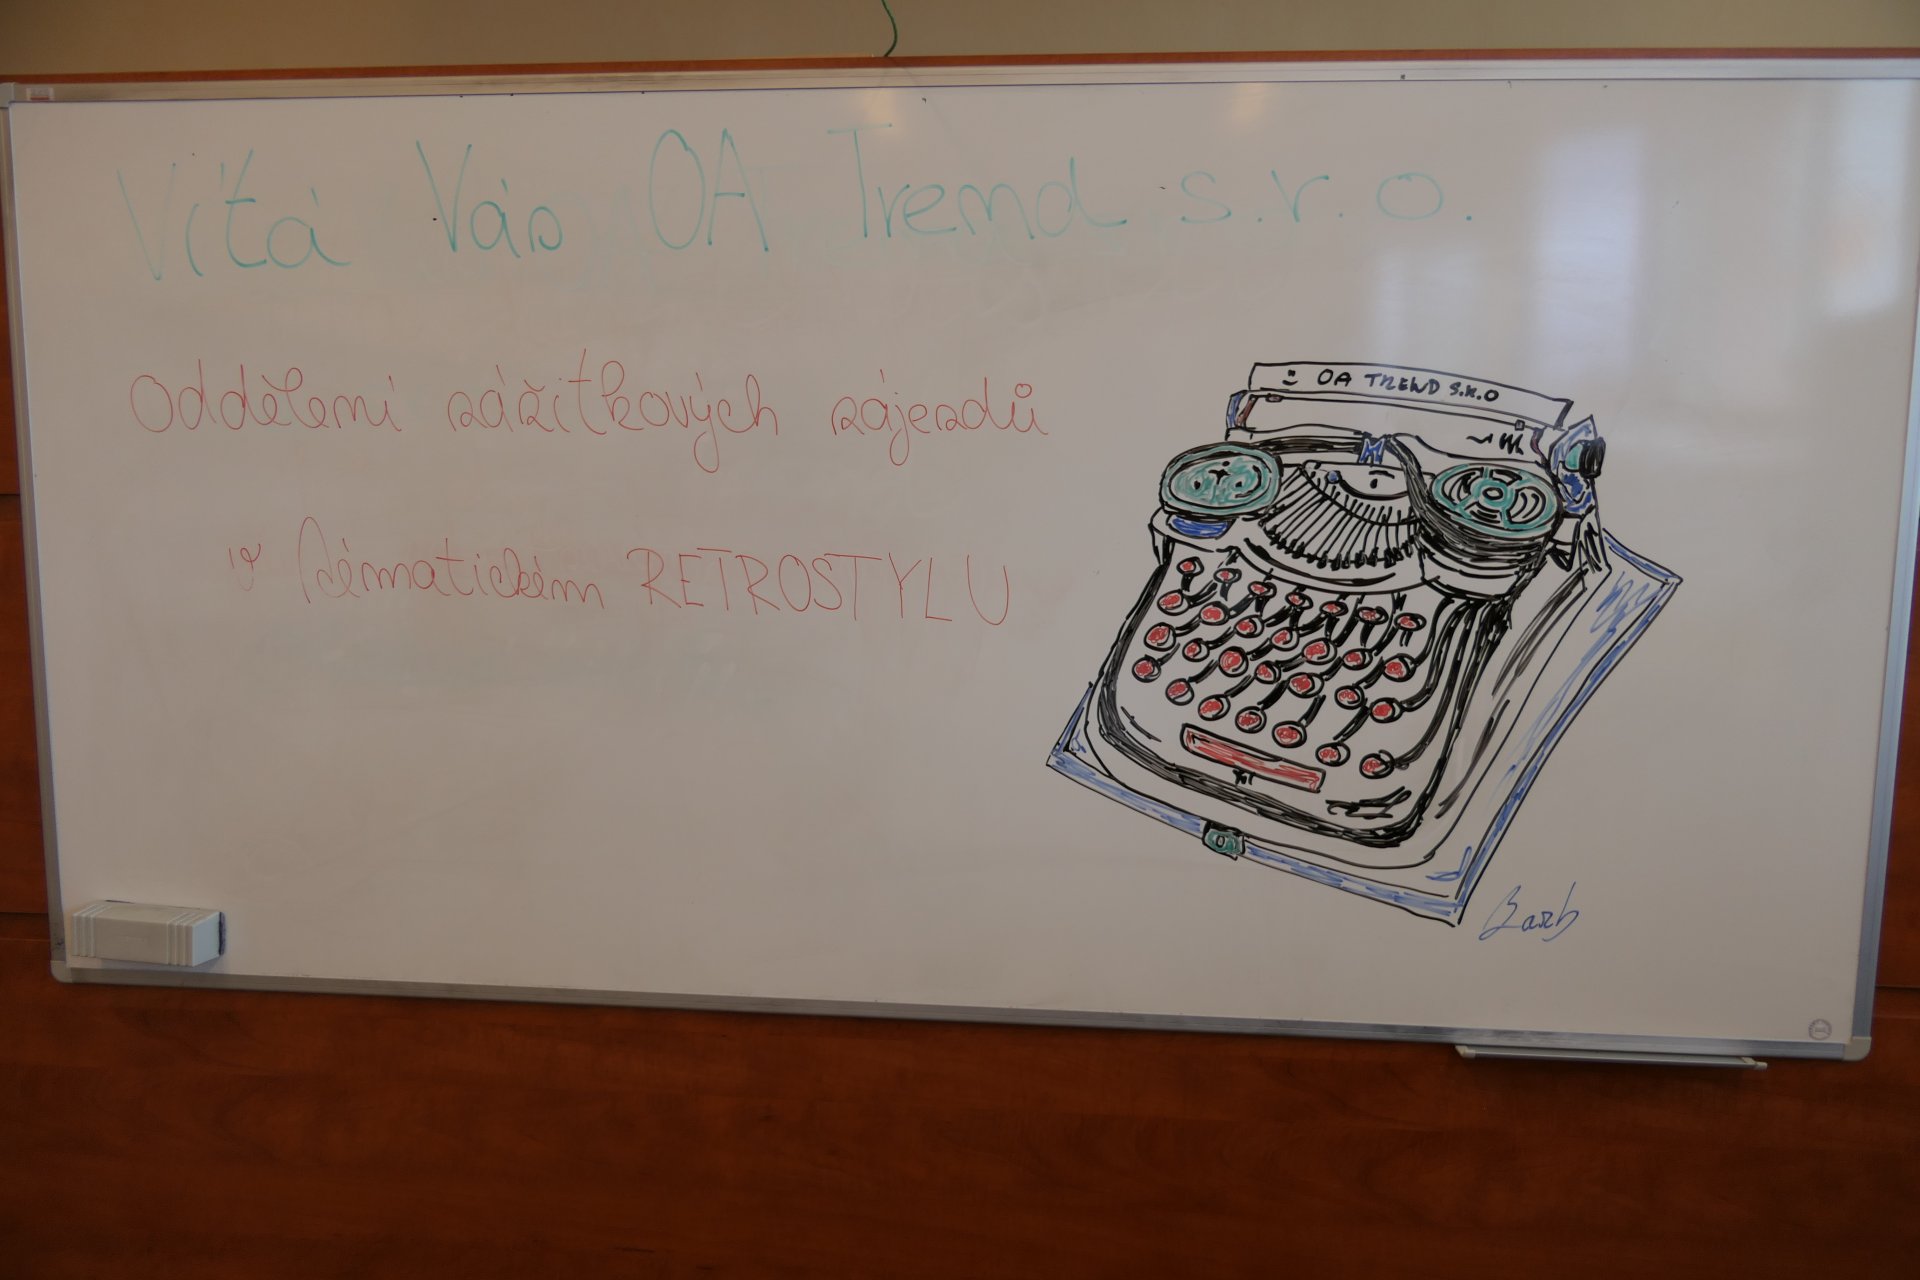 Vítá Vás OA Trend s.r.o.
Oddělení zážitkových zájezdů
v tématickém RETROSTYLU
:) OA TREND S.R.O
Barb